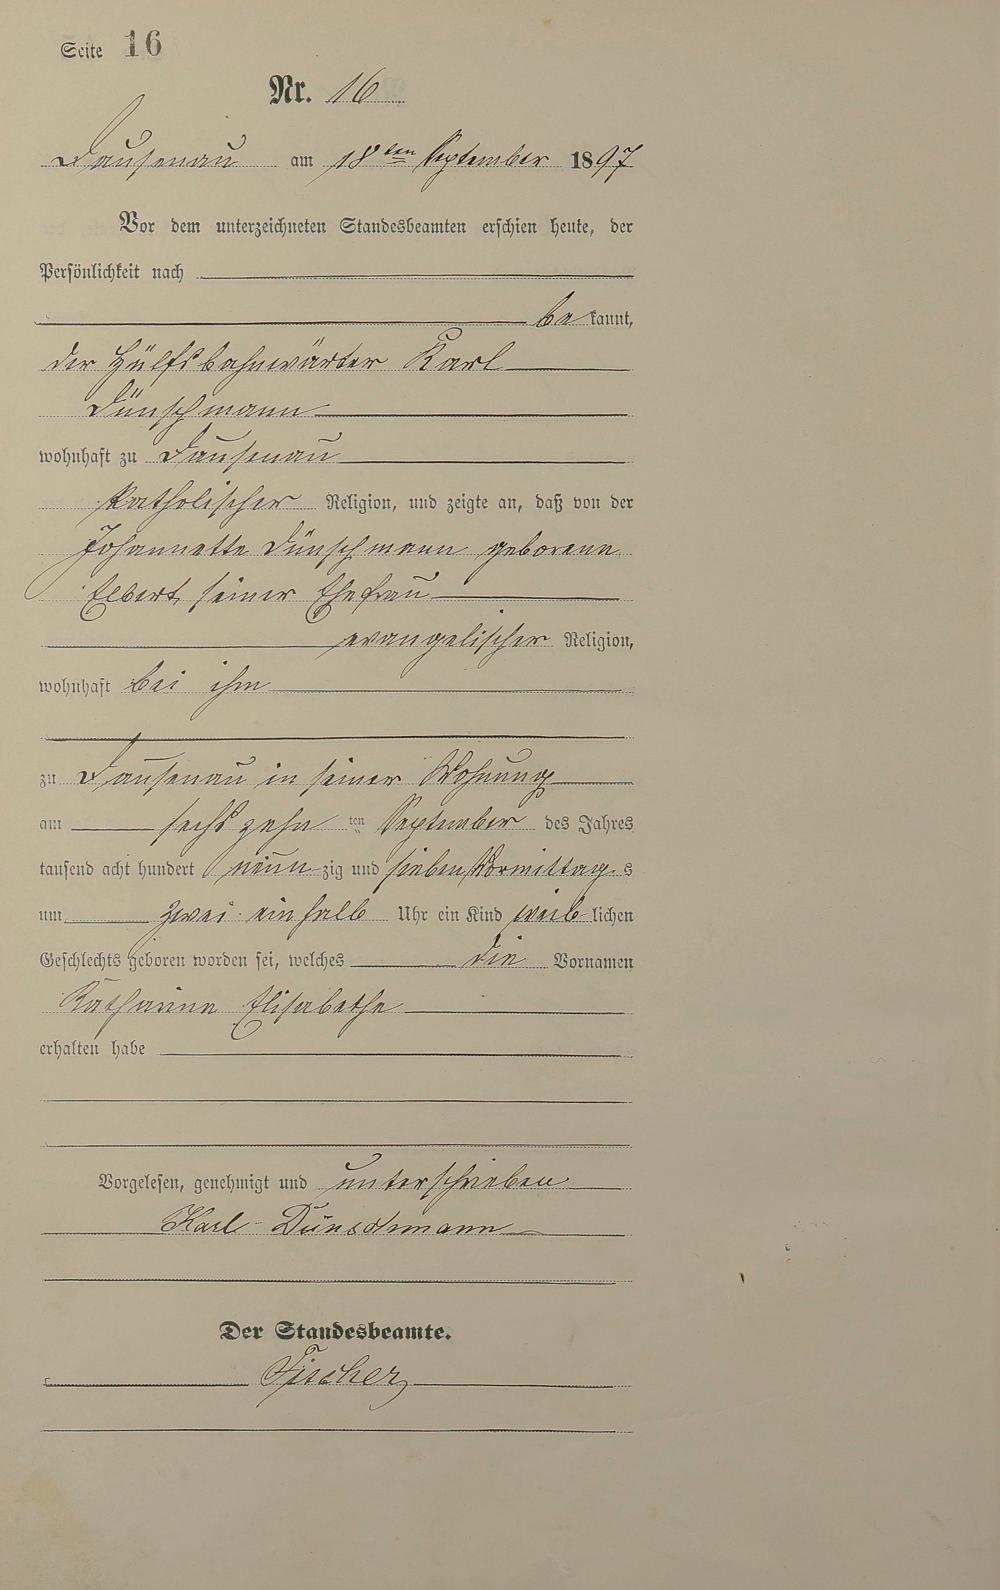 Seite 16
Nr. 16
Dausenau am 18ten September 1897
Vor dem unterzeichneten Standesbeamten erschien heute, der
Persönlichkeit nach
be kannt,
der Hülfsbahnwärter Karl
Dünschmann
wohnhaft zu Dausenau
katholischer Religion, und zeigte an, daß von der
Johannette Dünschmann geborene
Elbert, seiner Ehefrau
evangelischer Religion,
wohnhaft bei ihm
zu Dausenau in seiner Wohnung
am sechszehn ten September des Jahres
tausend acht hundert neun zig und sieben Vormittag s
um zwei einhalb Uhr ein Kind weib lichen
Geschlechts geboren worden sei, welches die Vornamen
Katharina Elisabetha
erhalten habe
Vorgelesen, genehmigt und unterschrieben
Karl Dünschmann
Der Standesbeamte.
Fischer